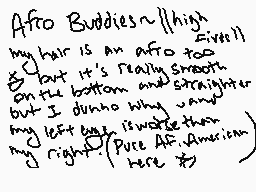 Afro Buddies~ ||high
fives||
my hair is an afro too
but it's really smooth
on the bottom and straighter
but I dunno why and
my left eye is worse than
my right. (Pure Afr. American
here)